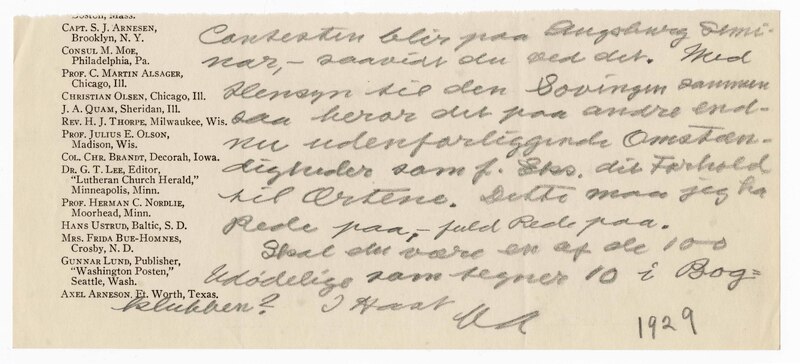 Boston, Mass.
CAPT. S. J. ARNESEN,
Brooklyn, N. Y.
CONSUL M. MOE,
Philadelphia, Pa.
PROF. C. MARTIN ALSAGER,
Chicago, Ill.
CHRISTIAN OLSEN, Chicago, Ill.
J. A. QUAM, Sheridan, Ill.
REV. H. J. THORPE, Milwaukee, Wis.
PROF. JULIUS E. OLSON,
Madison, Wis.
COL. CHR. BRANDT, Decorah, Iowa.
DR. G. T. LEE, Editor,
"Lutheran Church Herald,"
Minneapolis, Minn.
PROF. HERMAN C. NORDLIE,
Moorhead, Minn.
HANS USTRUD, Baltic, S. D.
MRS. FRIDA BUE-HOMNES,
Crosby, N. D.
GUNNAR LUND, Publisher,
"Washington Posten,"
Seattle, Wash.
AXEL ARNESON, Ft. Worth, Texas.
Contesten blir paa Augsburg Semi-
nar, - saavidt du ved det. Med
Hensyn til den Sovingen sammen
saa beror det paa andre end-
nu udenforliggende Omstæn-
digheder som f. Eks. dit Forhold
til Ørtene. Dette maa jeg ha
Rede paa, - fuld Rede paa.
Skal du være en af de 100
Udødelige som tegner 10 i Bog=
klubben? I Hast
1929